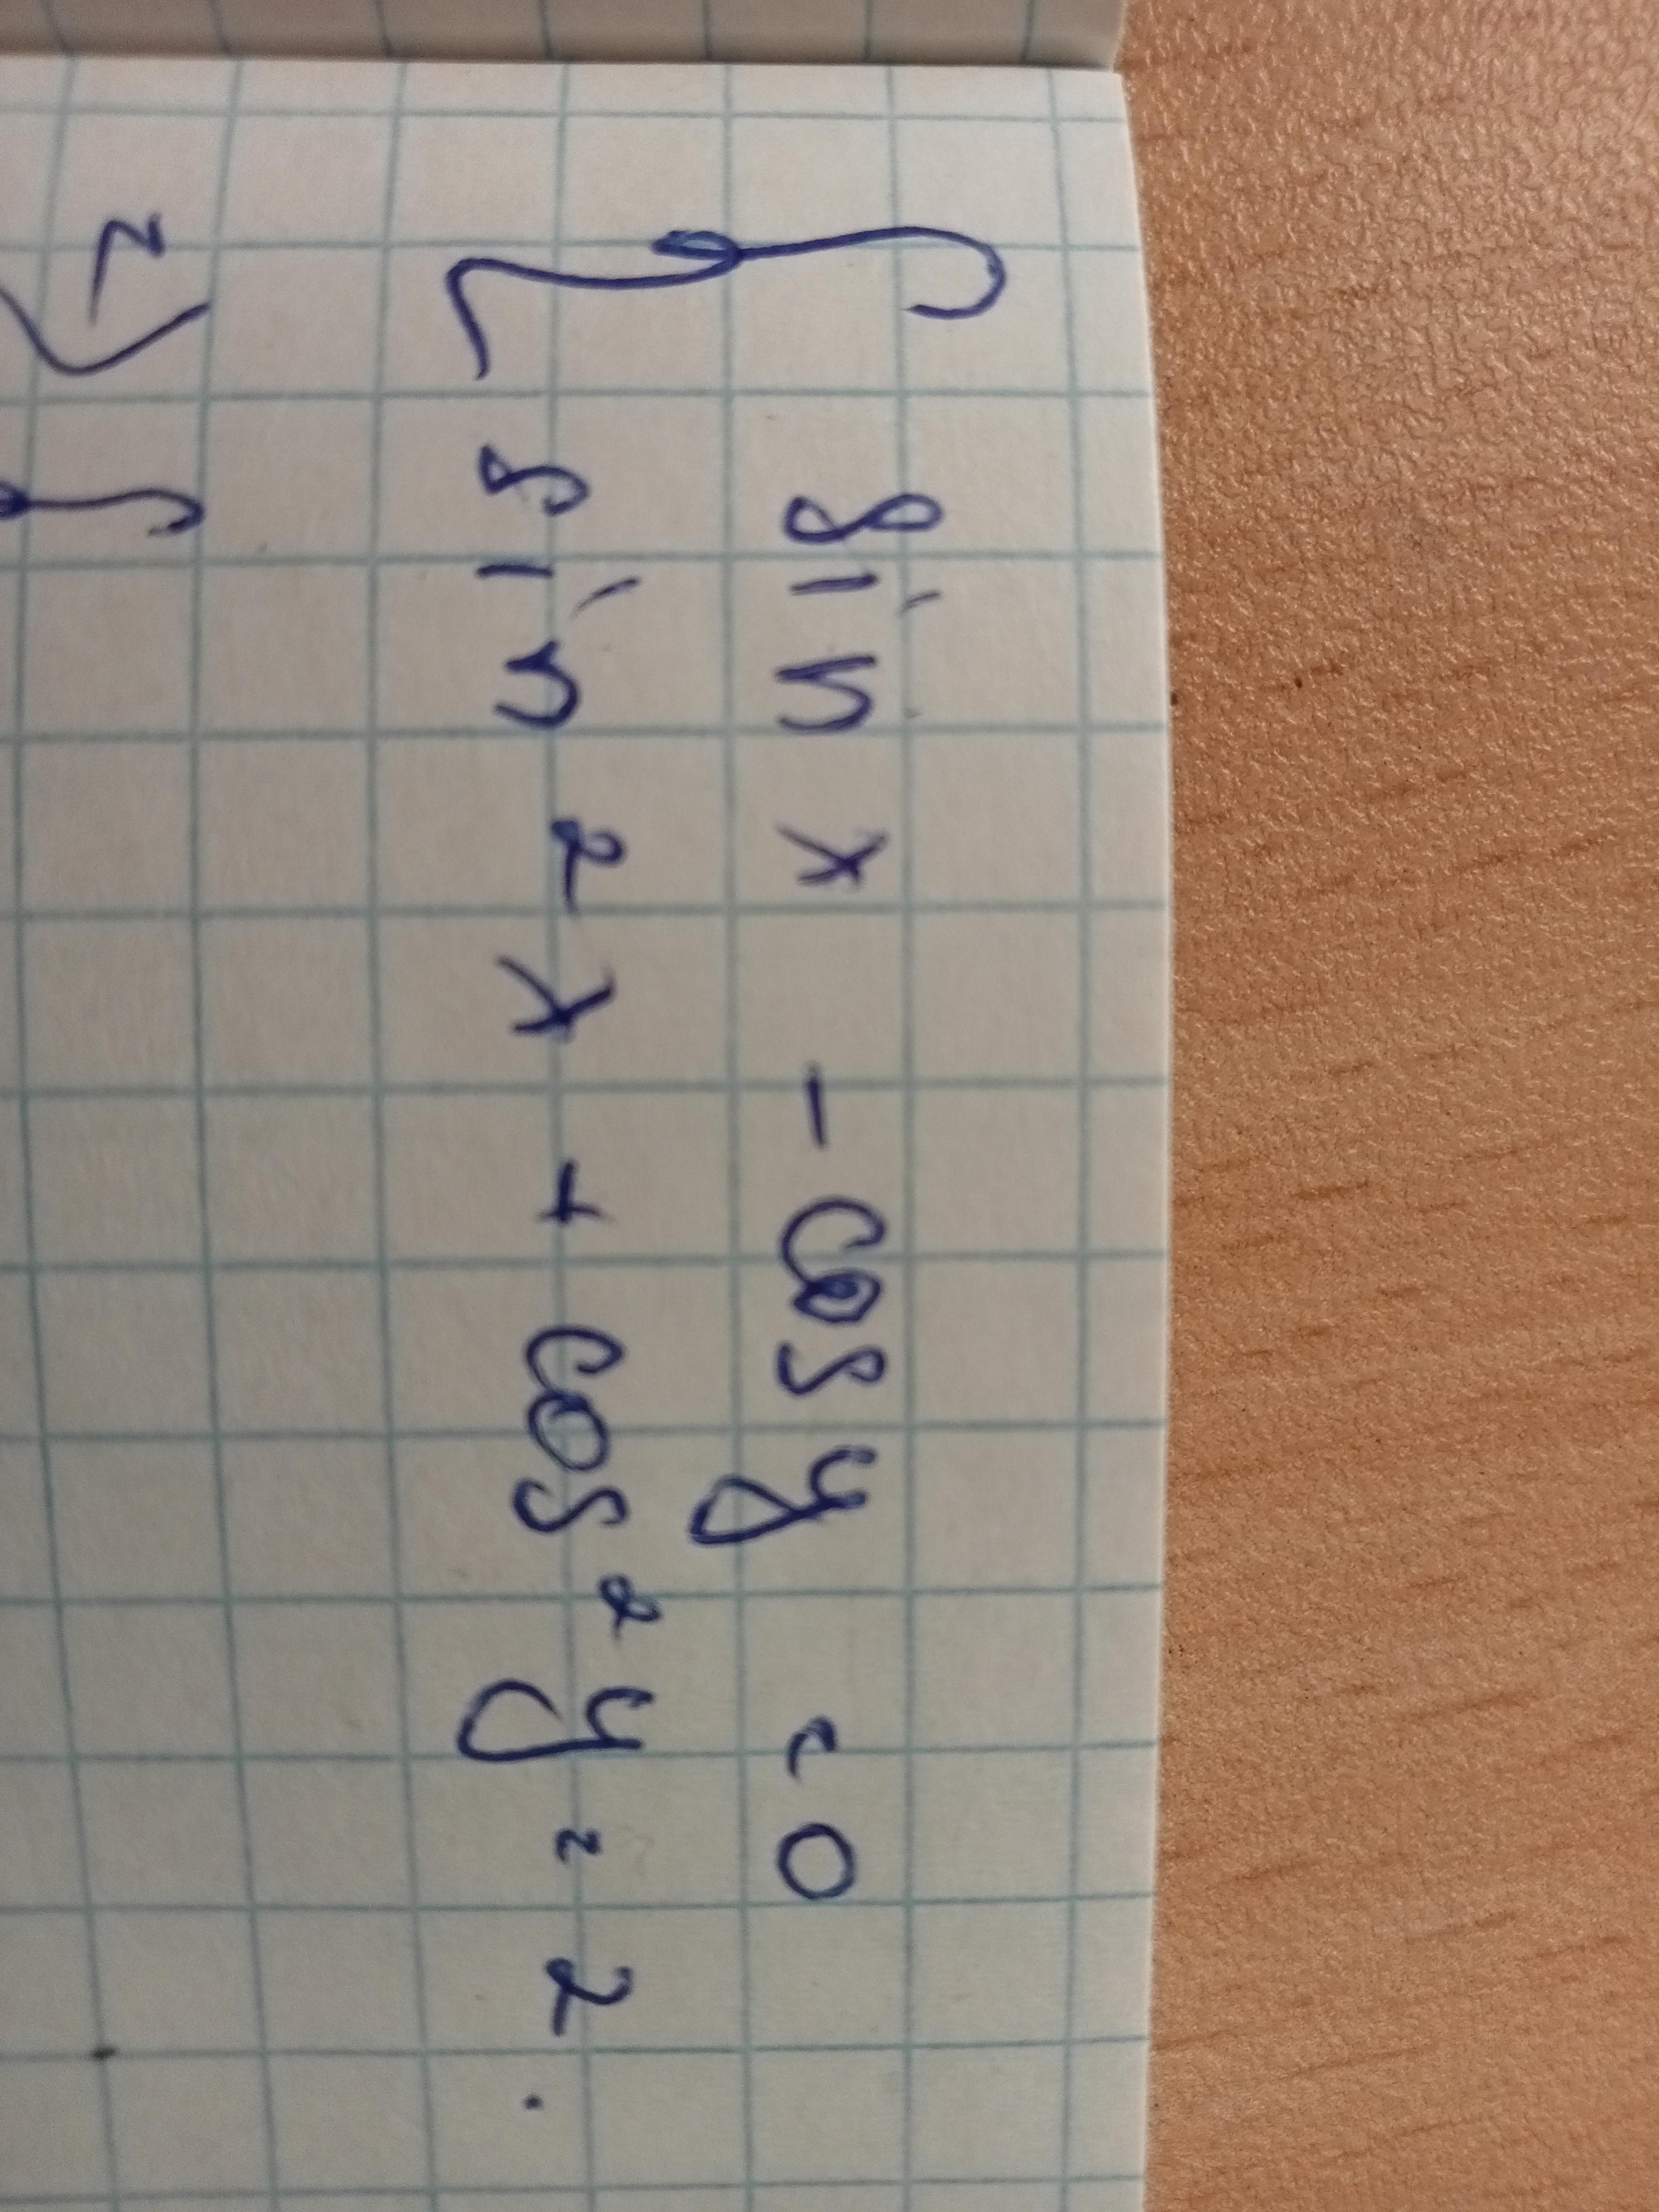 { sin x - cos y = 0
sin² x + cos² y = 2.